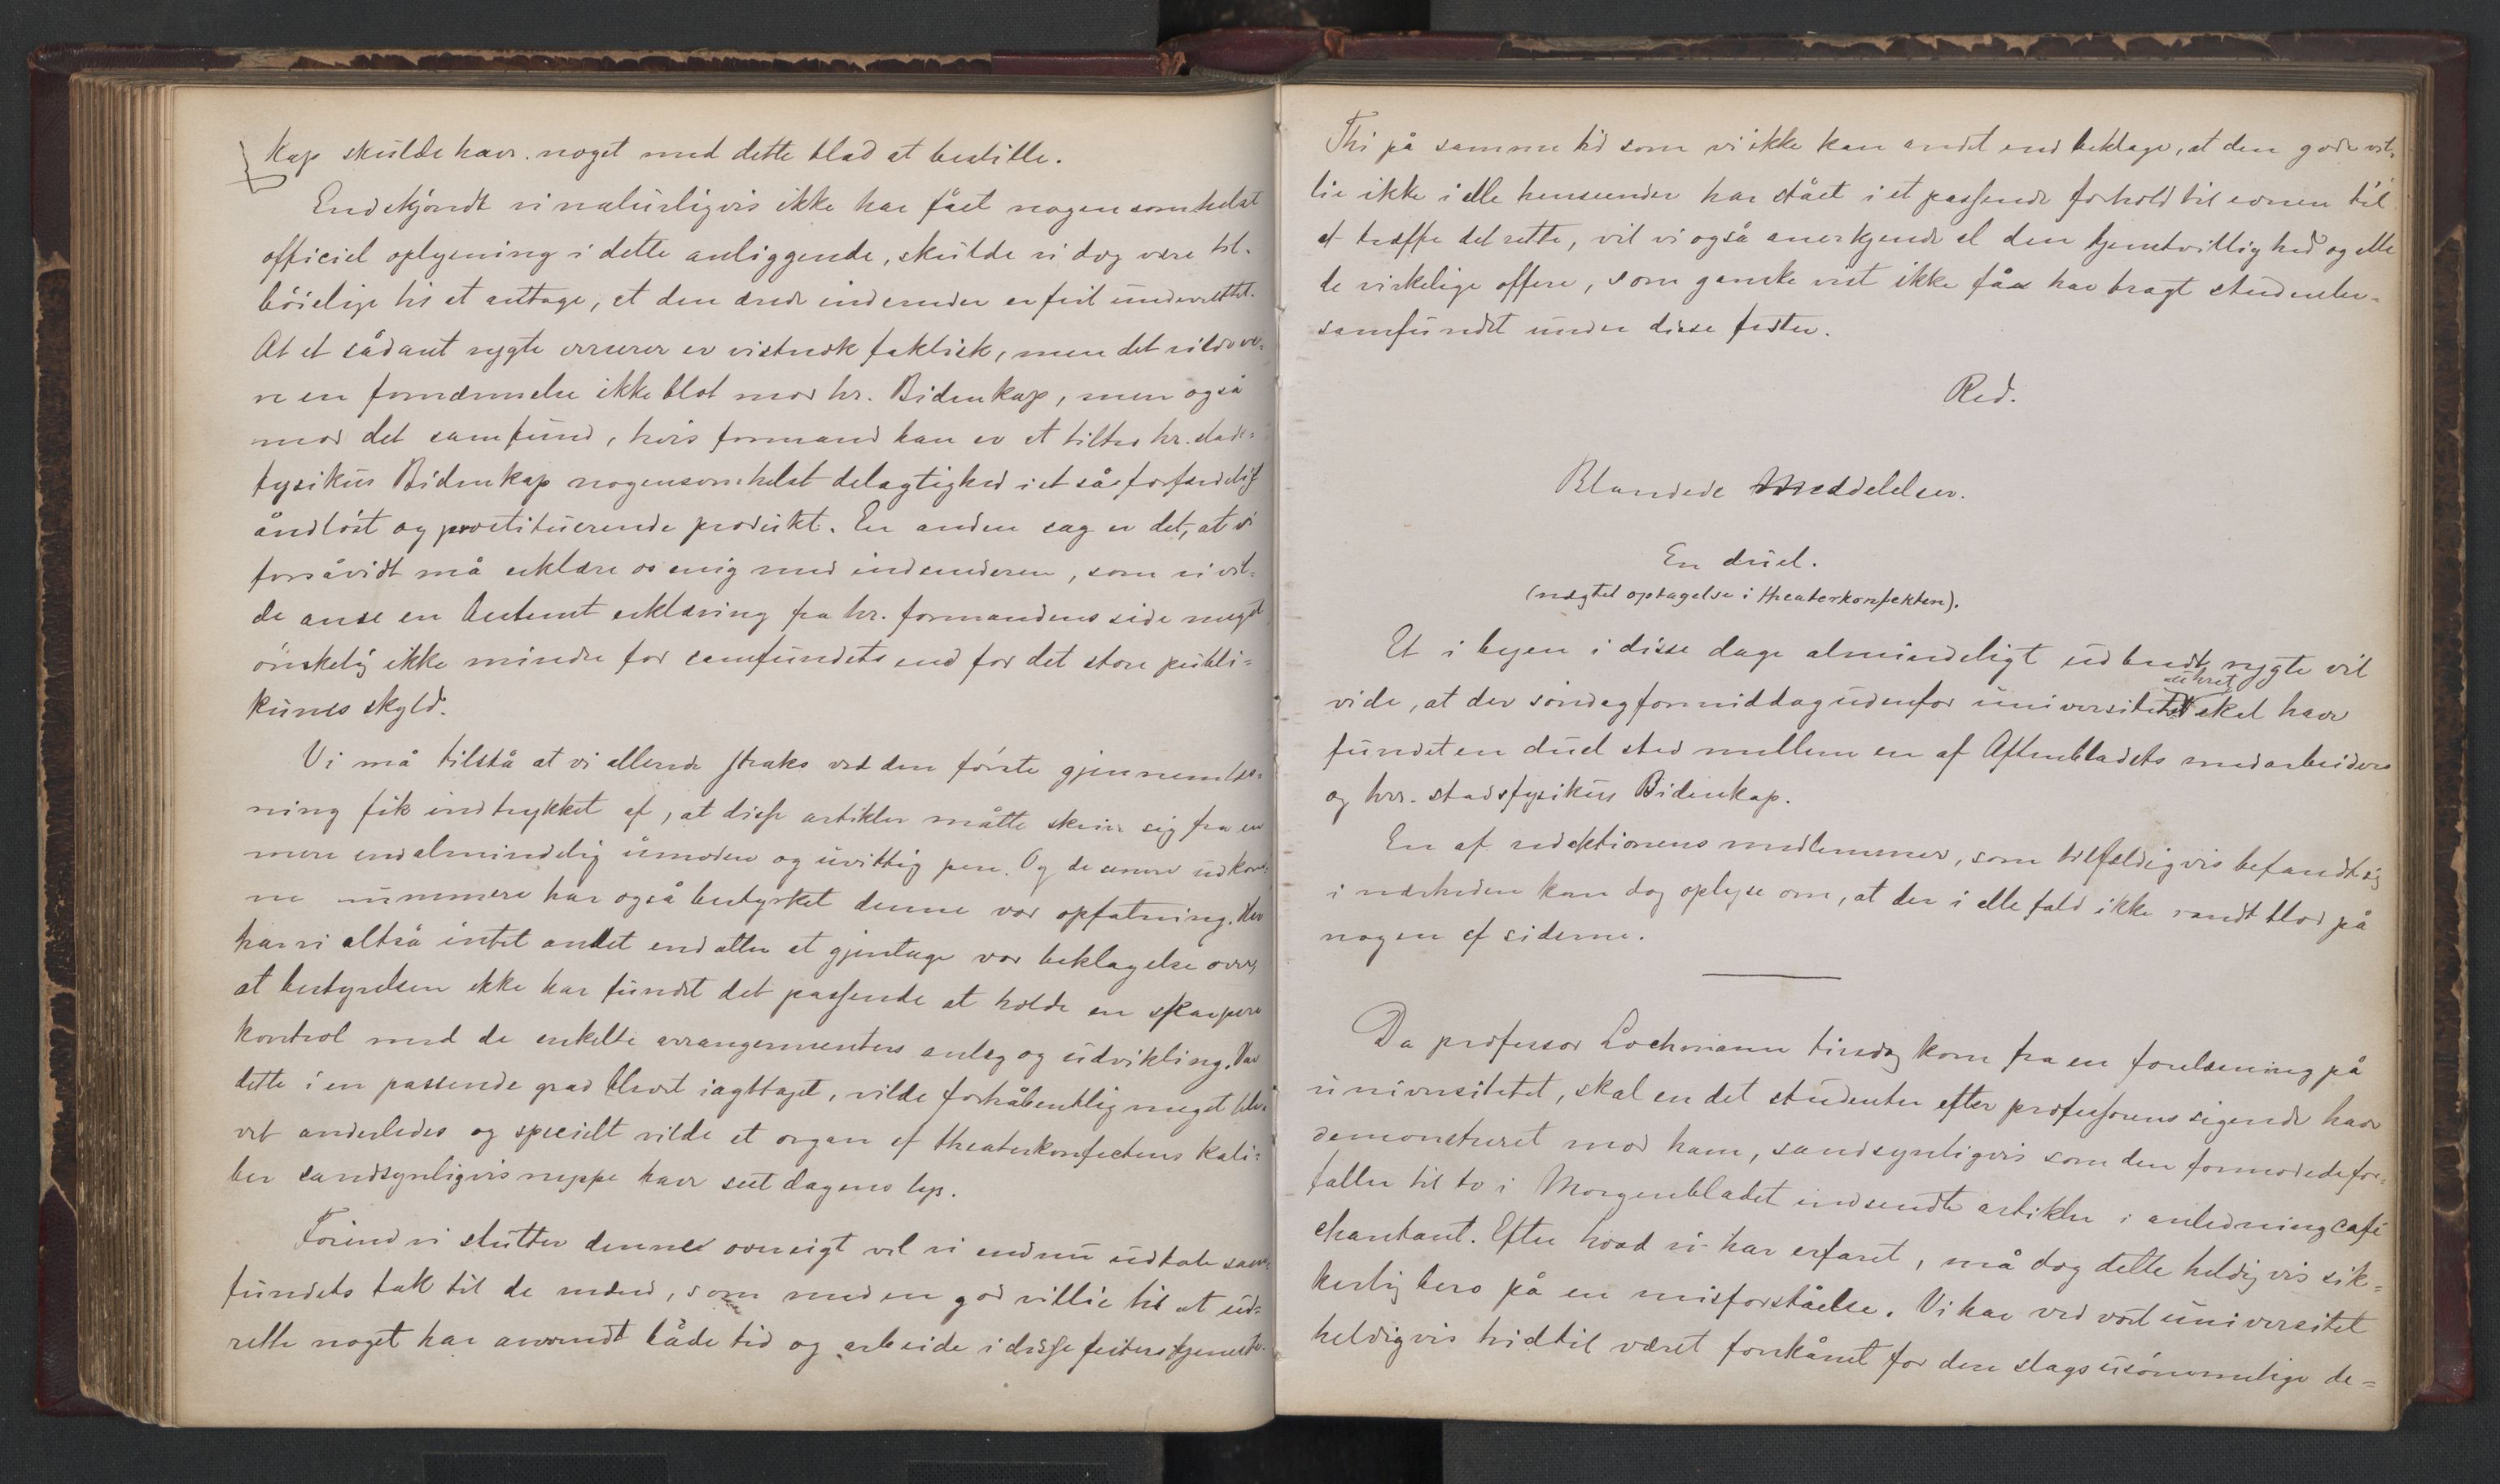 kap skulde have noget med dette blad at bestille.
Endskjöndt vi naturligvis ikke har fået nogensomhelst
officiel oplysning i dette anliggende, skulde vi dog være til-
böielige til at antage, at den ærede indsender er feil underrettet.
At et sådant rygte verserer er vistnok faktisk, men det vilde væ-
re en fornærmelse ikke blot mod hr. Bidenkap, men også
mod det samfund, hvis formand han er at tiltro hr. stads-
fysikus Bidenkap nogensomhelst delagtighed i et så forfærdelig
åndlöst og prostituerende produkt. En anden sag er det, at vi
forsåvidt må erklære os enig med indsenderen, som vi vil-
de anse en bestemt erklæring fra hr. formandens side meget
önskelig ikke mindre for samfundets end for det store publi-
kums skyld.
Vi må tilstå at vi allerede straks ved den förste gjennemlæs-
ning fik indtrykket af, at disse artikler måtte skrive sig fra en
mere end almindelig umoden og uvittig pen. Og de senere udkom-
ne nummere har også bestyrket denne vor opfatning. Her
har vi altså intet andet end atter at gjentage vor beklagelse over,
at bestyrelsen ikke har fundet det passende at holde en skarpere
kontrol med de enkelte arrangementers anlæg og udvikling. Var
dette i en passende grad blevet iagttaget, vilde forhåbentlig meget ble-
vet anderledes og specielt vilde et organ af theaterkonfectens kali-
ber sandsynligvis neppe have seet dagens lys.
Förend vi slutter denne oversigt vil vi endnu udtale sam-
fundets tak til de mænd, som med en god villie til at ud-
rette noget har anvendt både tid og arbeide i disse festers tjeneste.
Thi på samme tid som vi ikke kan andet end beklage, at den gode vil-
lie ikke i alle henseender har stået i et passende forhold til evnen til
at træffe det rette, vil vi også anerkjende al den tjenstvillighed og alle
de virkelige offere, som ganske vist ikke få har bragt studenter-
samfundet under disse fester.
Red.
Blandede Meddelelser.
En duel.
(nægtet optagelse i theaterkonfekten).
Et i byen i disse dage almindeligt udbredt rygte vil
vide, at der söndag formiddag udenfor universitetet skal have
fundet en duel sted mellem en af Aftenbladets medarbeidere
og hrr. stadsfysikus Bidenkap.
En af redaktionens medlemmer, som tilfældigvis befandt sig
i nærheden kan dog oplyse om, at der i alle fald ikke randt blod på
nogen af siderne.
Da professor Lochmann tirsdag kom fra en forelæsning på
universitetet, skal en del studenter efter professorens sigende have
demonstreret mod ham, sandsynligvis som den formodede for-
fatter til to i Morgenbladet indsendte artikler i anledning café
chantant. Efter hvad vi har erfaret, må dog dette heldigvis sik-
kerlig bero på en misforståelse. Vi har ved vort universitet
heldigvis hidtil været forskånet for den slags usömmelige de-